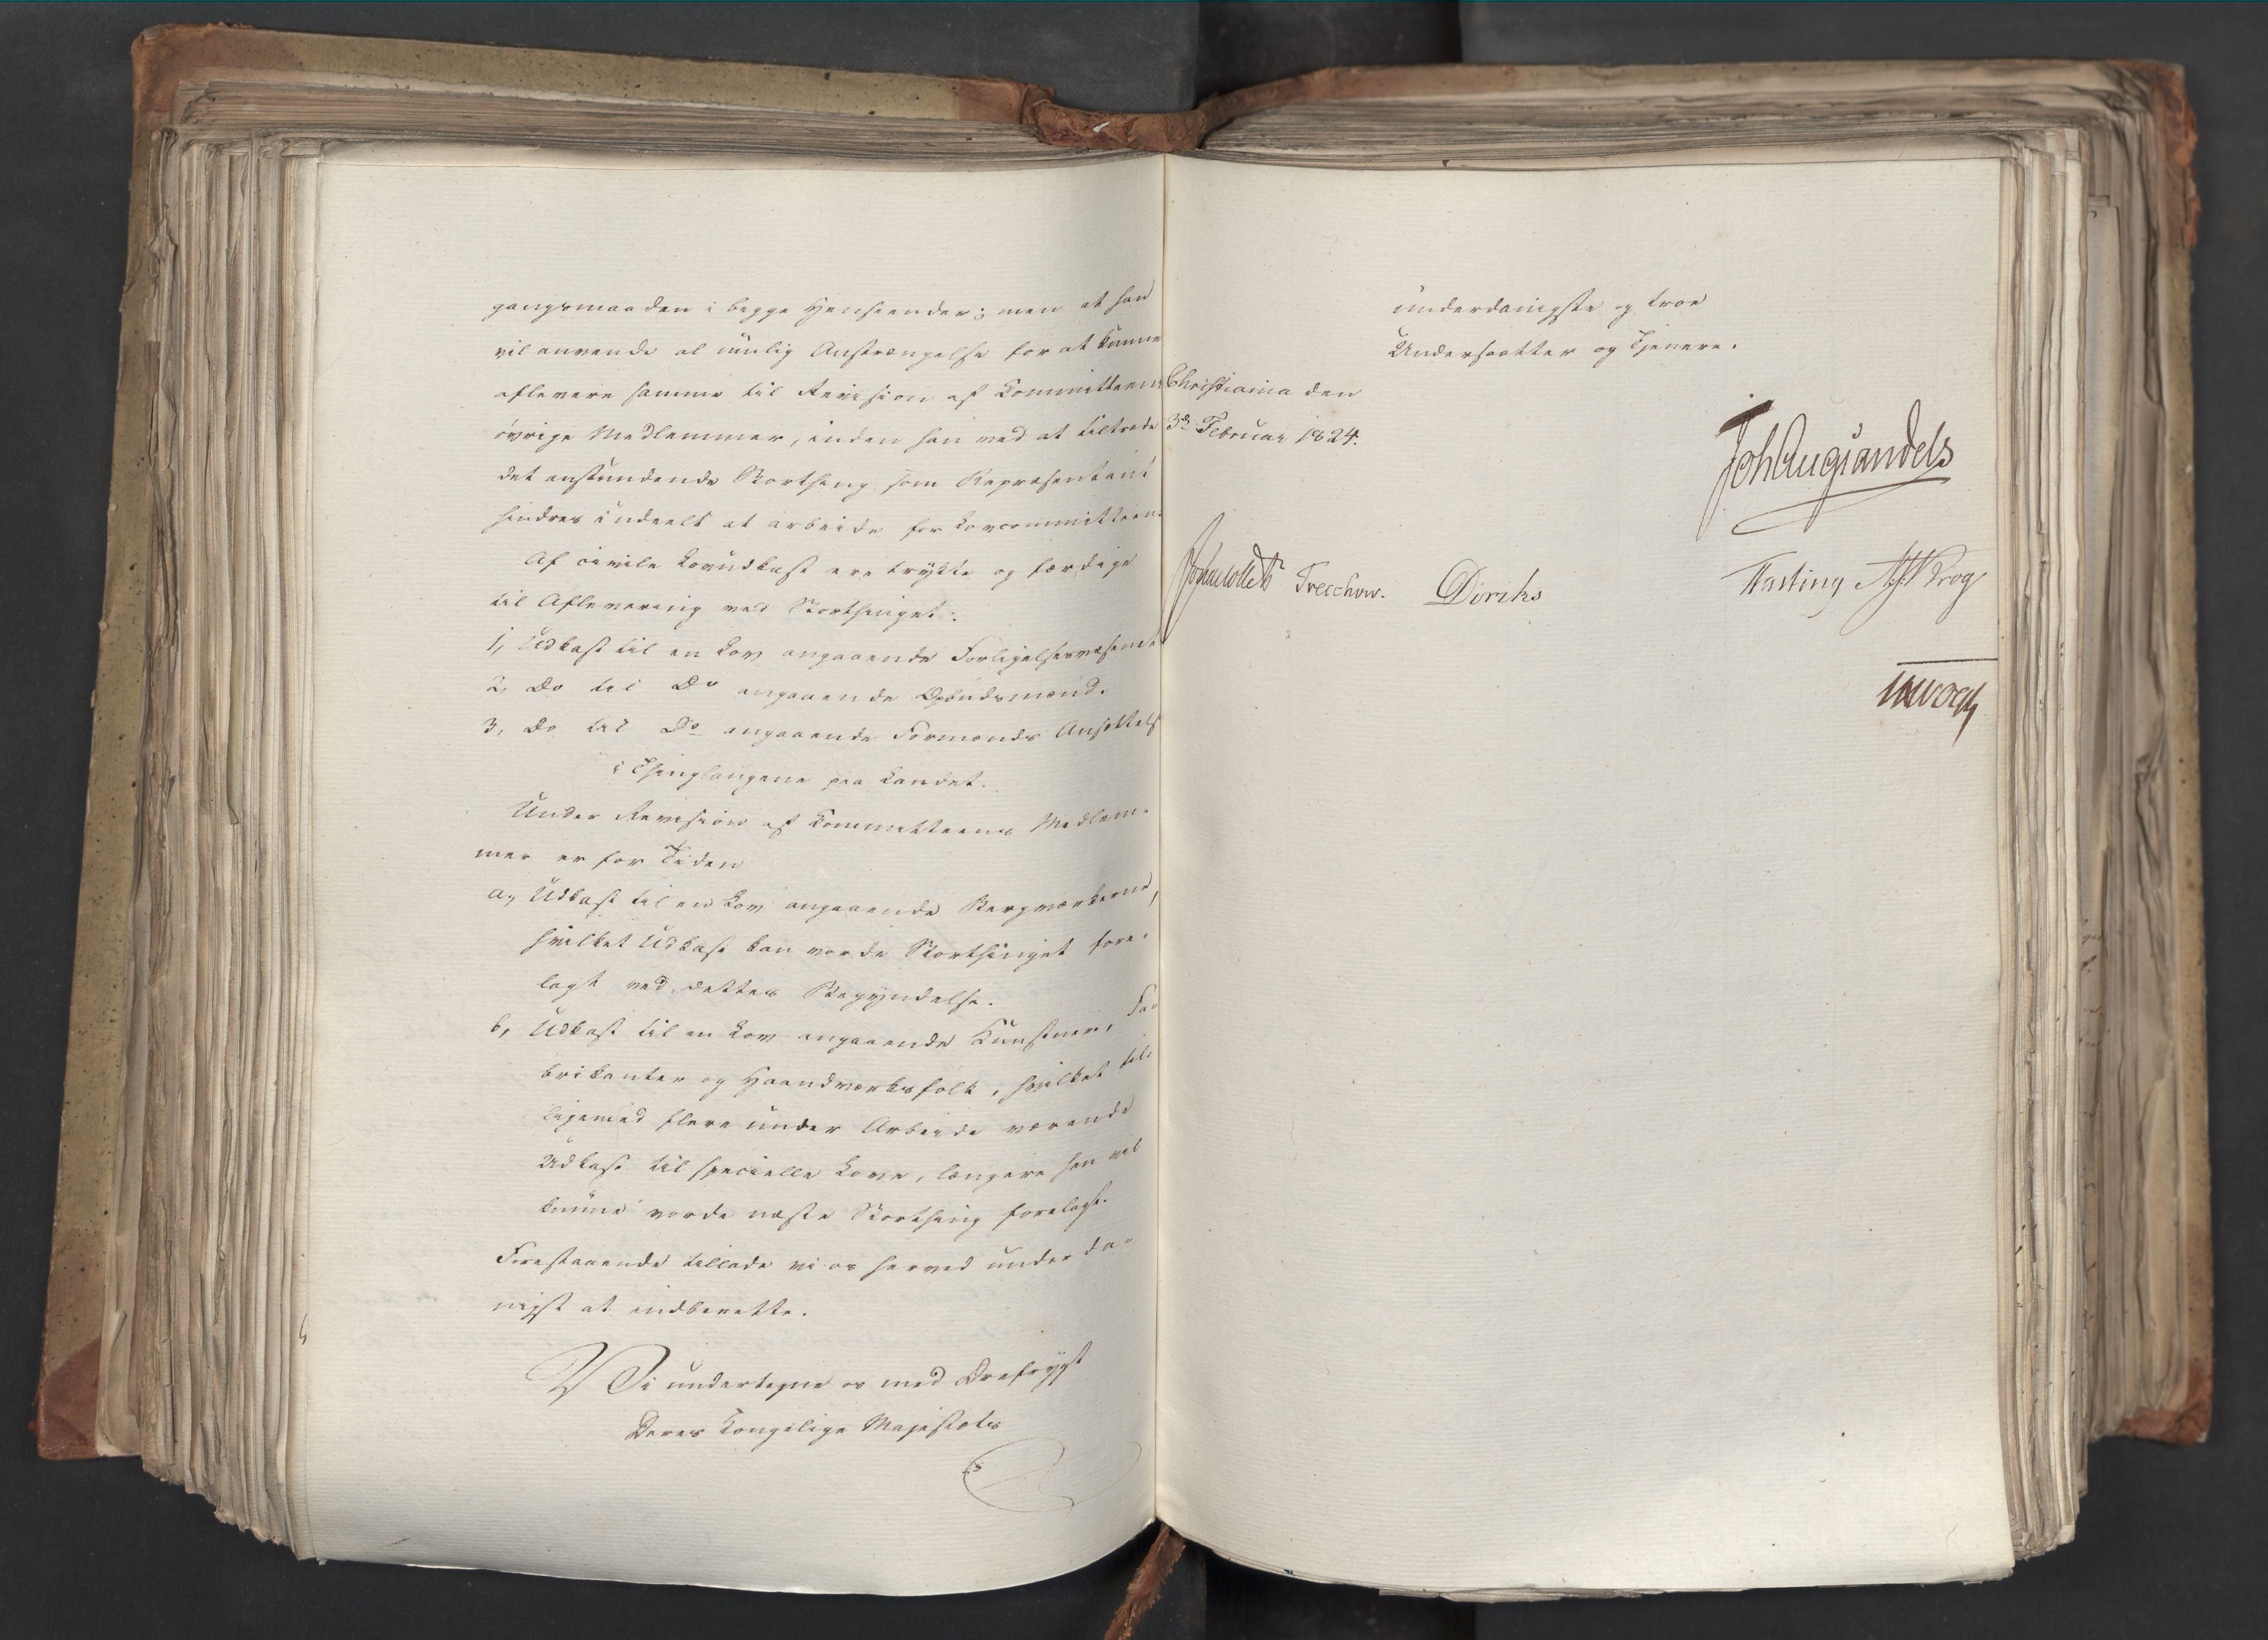 gangsmaaden i begge Henseender; men at han
vil anvende al muelig Anstrængelse for at kunne
aflevere samme til Revision af Committeens
øvrige Medlemmer, inden han ved at tiltræde
det anstundende Storthing som Repræsentant
hindres i udeelt at arbeide for Lovcommitteen.
Af civile Lovudkast ere trykte og færdige
til Aflevering ved Storthinget:
1, Udkast til en Lov angaaende Forligelsesvæsenet
2, Do til Do angaaende Opbudsmænd.
3, Do til Do angaaende Formænds Ansættelse
i Thinglaugene paa Landet.
Under Revision af Committeens Medlem-
mer er for Tiden
a, Udkast til en Lov angaaende Bergværkerne,
hvilket Udkast kan vorde Storthinget fore-
lagt ved dettes Begyndelse.
b, Udkast til en Lov angaaende Kunstner, Fa-
brikanter og Haandværksfolk, hvilket til-
ligemed flere under Arbeide værende
Udkast til specielle Love, længere hen vil
kunne vorde næste Storthing forelagt.
Forestaaende tillade vi os herved underda-
nigst at indberette.
Vi undertegne os med Ærefrygt
Deres Kongelige Majestæts
underdanigste og troe
Undersaatter og Tjenere.
Christiania den
3de Februar 1824.
Joh Aug Sandels
Jonas Collett Treschow. Diriks Fasting Krog